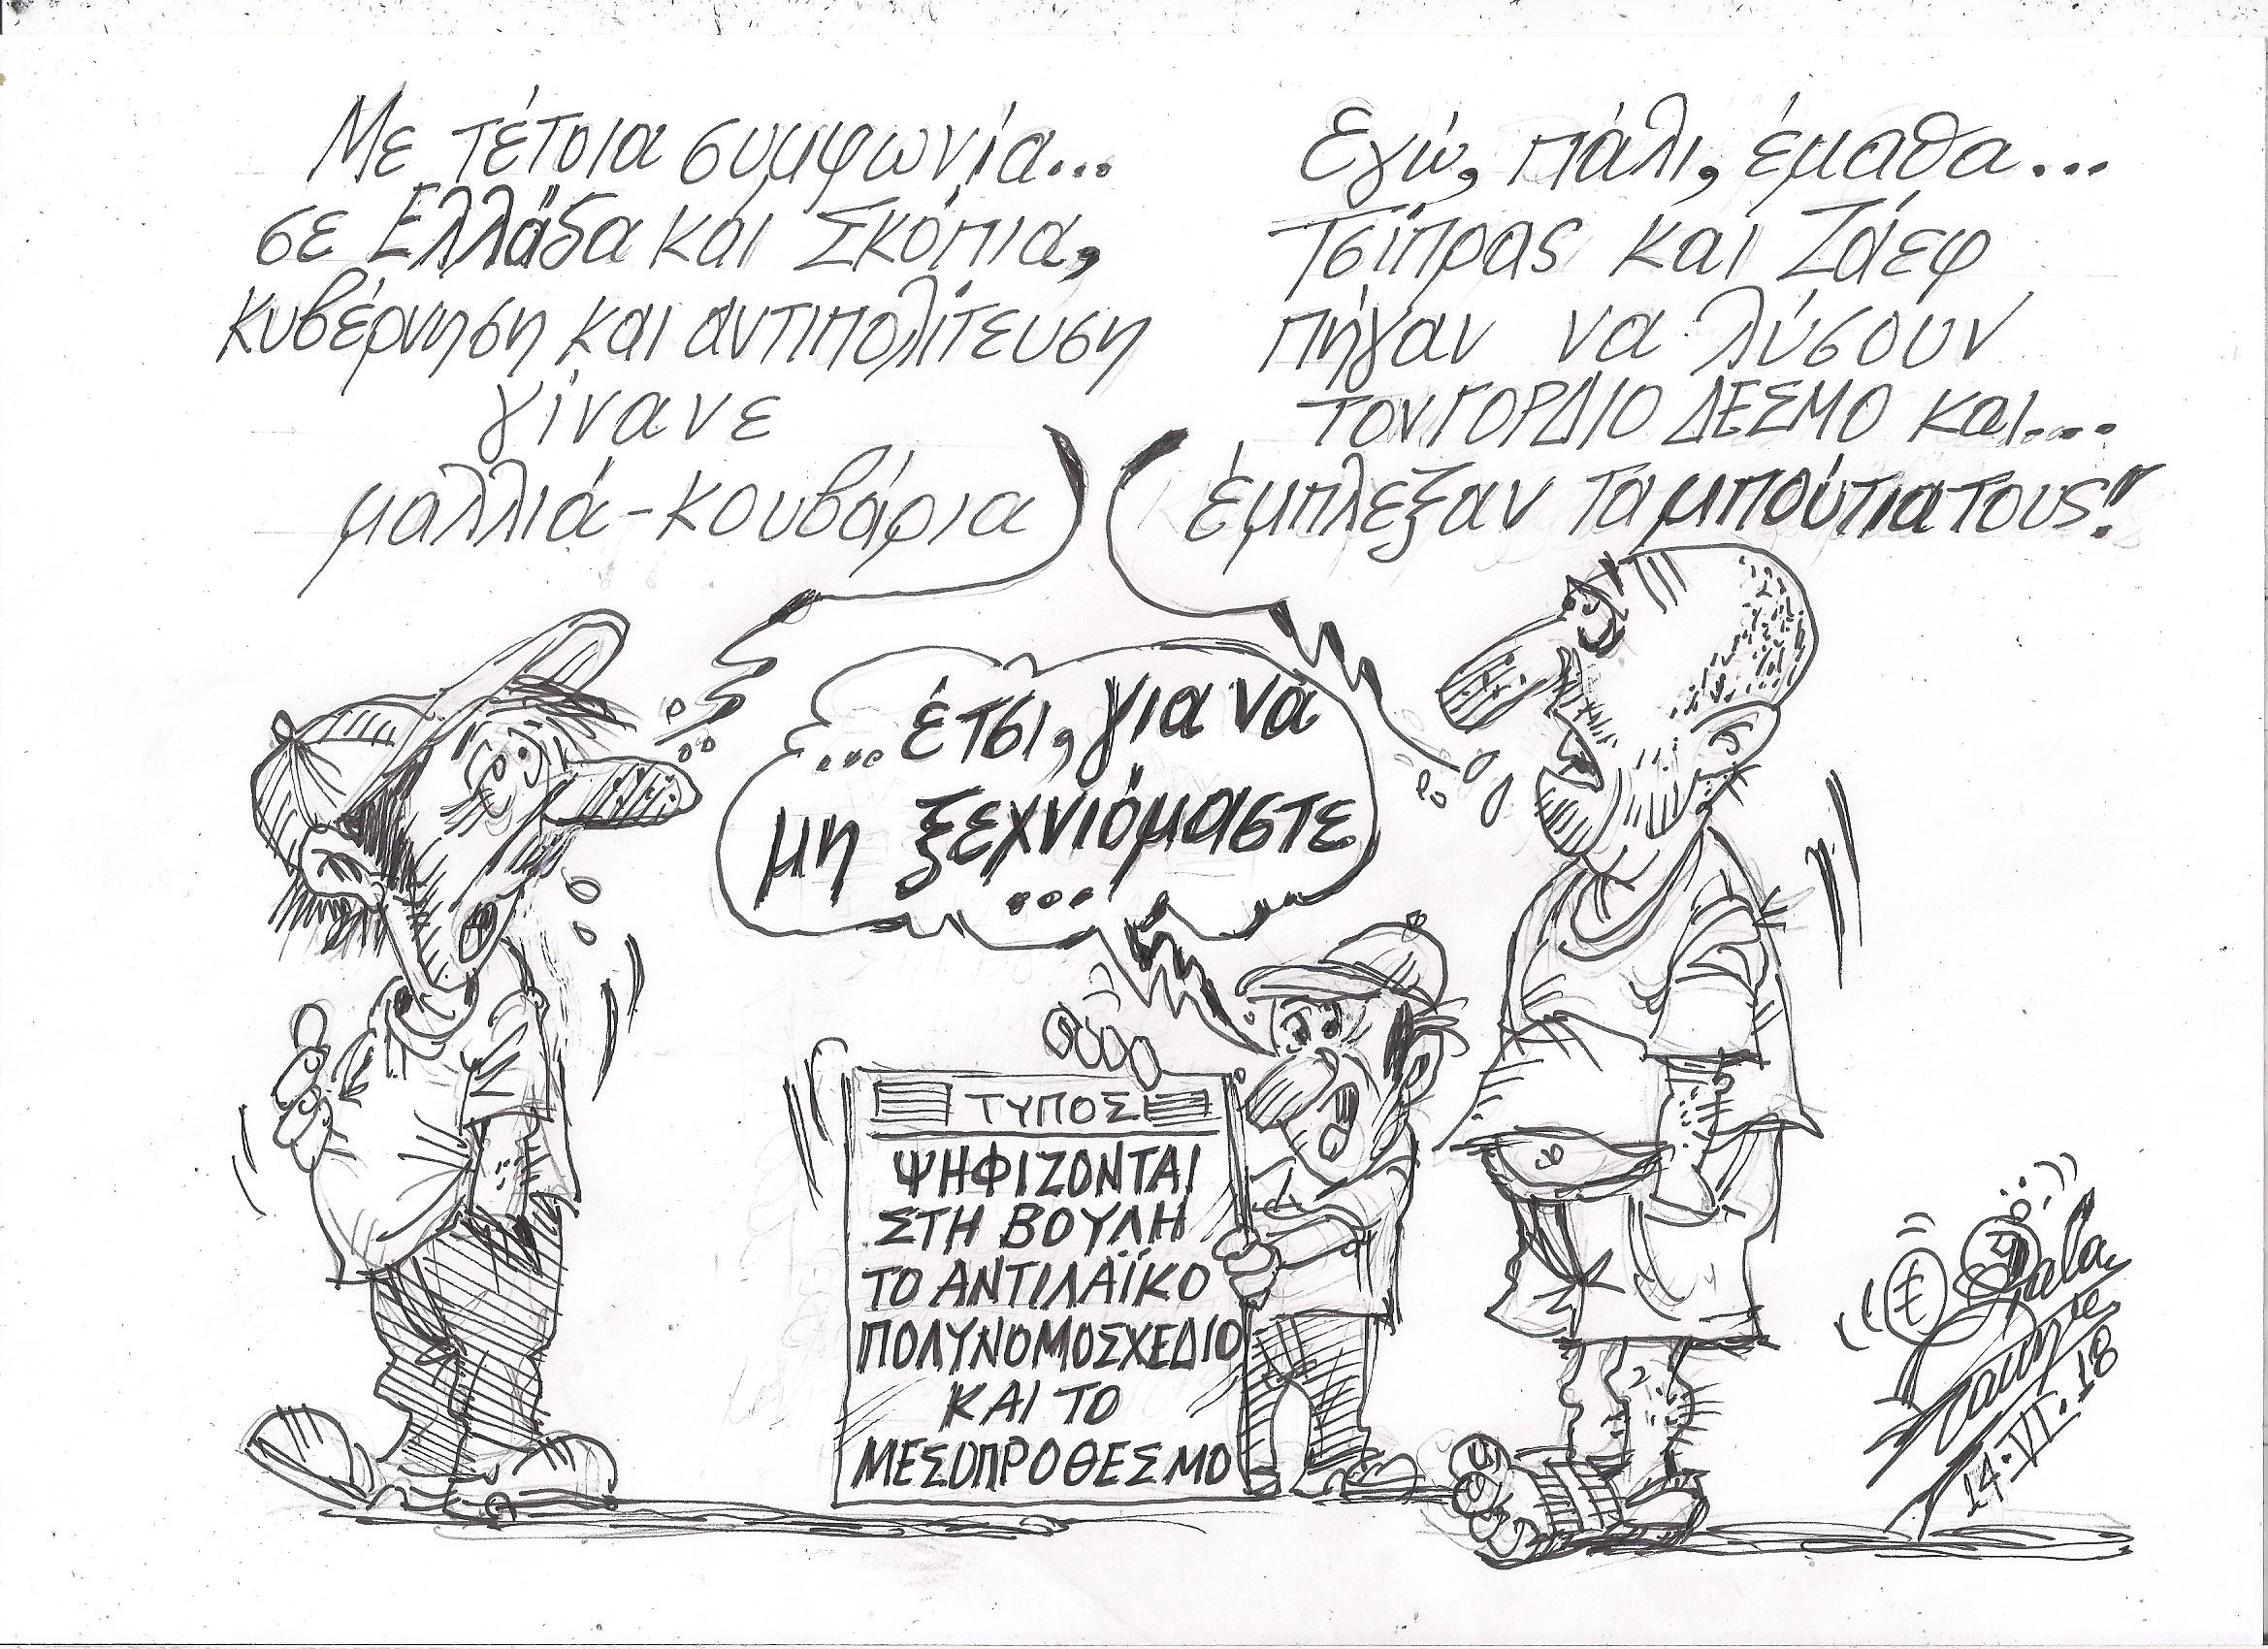 Με τέτοια συμφωνία...
σε Ελλάδα και Σκόπια,
κυβέρνηση και αντιπολίτευση
γίνανε
μαλλιά-κουβάρια
Εγώ, πάλι, έμαθα...
Τσίπρας και Ζάεφ
πήγαν να λύσουν
τον ΓΟΡΔΙΟ ΔΕΣΜΟ και....
έμπλεξαν τα μπούτια τους!!
...έτσι, για να
μη ξεχνιόμαστε
...
ΤΥΠΟΣ
ΨΗΦΙΖΟΝΤΑΙ
ΣΤΗ ΒΟΥΛΗ
ΤΟ ΑΝΤΙΛΑΪΚΟ
ΠΟΛΥΝΟΜΟΣΧΕΔΙΟ
ΚΑΙ ΤΟ
ΜΕΣΟΠΡΟΘΕΣΜΟ
14.VI.18